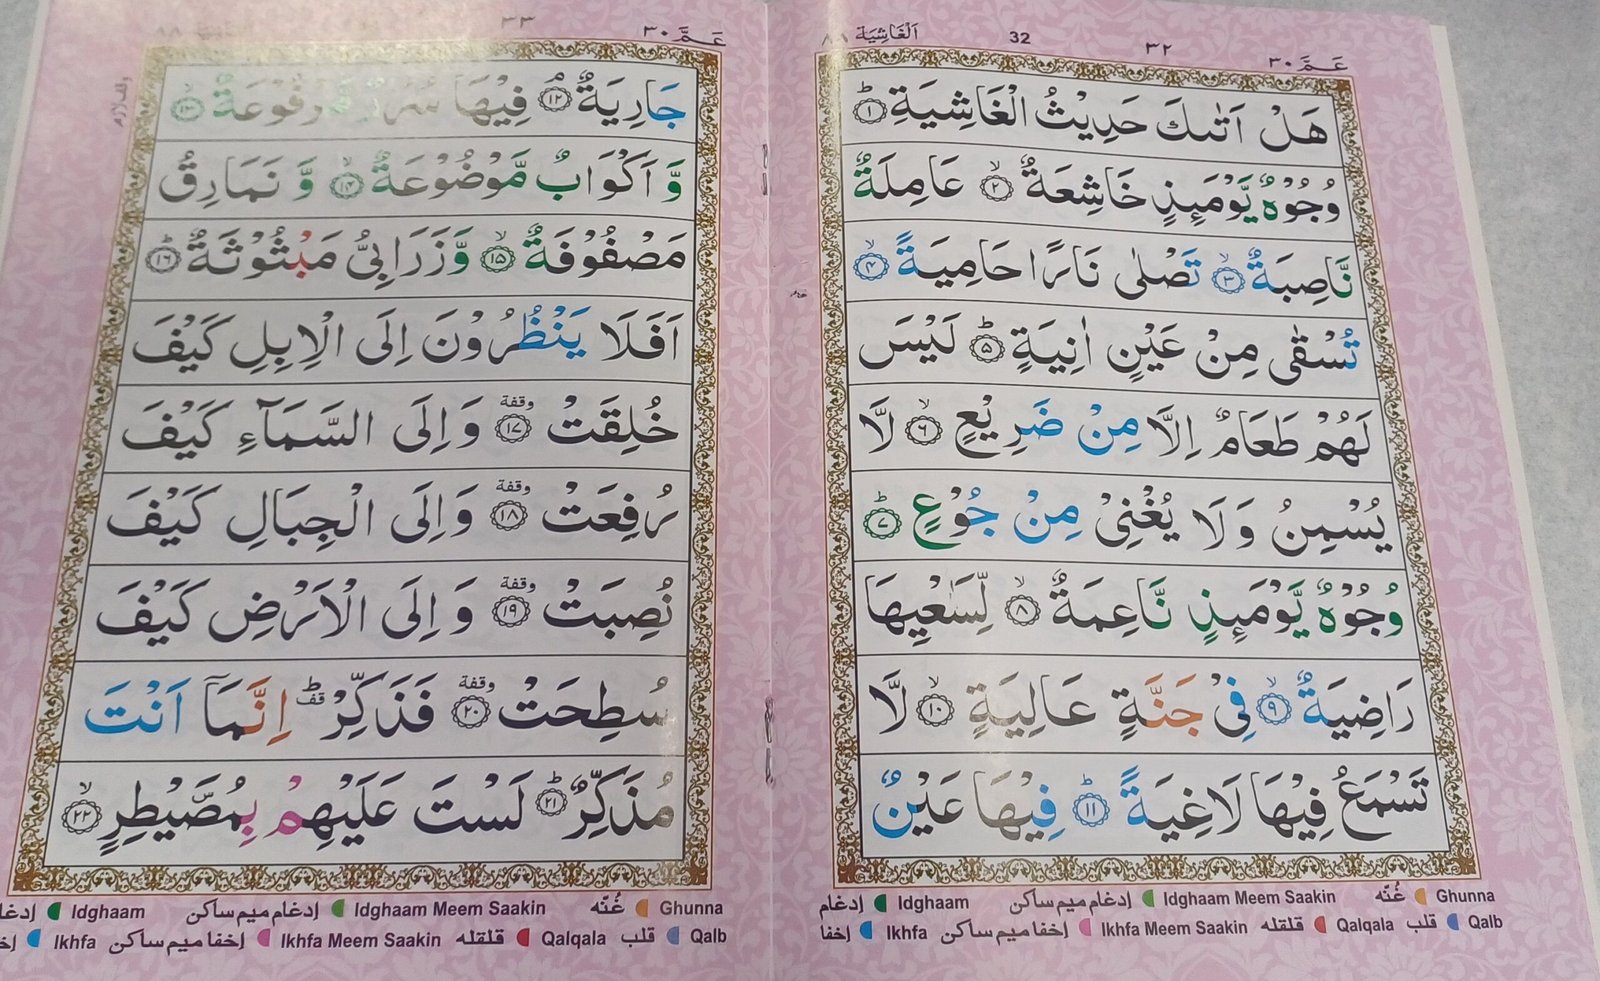 عَـمَّ ٣٠
٣٢
32
اَلْغَاشِيَة ٨٨
هَلْ اَتٰىكَ حَدِيْثُ الْغَاشِيَةِ ؕ ١
وُجُوْهٌ يَّوْمَىِٕذٍ خَاشِعَةٌ ۙ ٢ عَامِلَةٌ
نَّاصِبَةٌ ۙ ٣ تَصْلٰى نَارًا حَامِيَةً ۙ ٤
تُسْقٰى مِنْ عَيْنٍ اٰنِيَةٍ ؕ ٥ لَيْسَ
لَهُمْ طَعَامٌ اِلَّا مِنْ ضَرِيْعٍ ۙ ٦ لَّا
يُسْمِنُ وَلَا يُغْنِىْ مِنْ جُوْعٍ ؕ ٧
وُجُوْهٌ يَّوْمَىِٕذٍ نَّاعِمَةٌ ۙ ٨ لِّسَعْيِهَا
رَاضِيَةٌ ۙ ٩ فِىْ جَنَّةٍ عَالِيَةٍ ۙ ١٠ لَّا
تَسْمَعُ فِيْهَا لَاغِيَةً ؕ ١١ فِيْهَا عَيْنٌ
Ghunna غُنّه Idghaam Meem Saakin إدغام ميم ساكن Idghaam إدغام
Qalb قلب Qalqala قلقله Ikhfa Meem Saakin إخفا ميم ساكن Ikhfa إخفا
عَـمَّ ٣٠
٣٣
جَارِيَةٌ ۘ ١٢ فِيْهَا سُرُرٌ مَّرْفُوْعَةٌ ۙ ١٣
وَّ اَكْوَابٌ مَّوْضُوْعَةٌ ۙ ١٤ وَّ نَمَارِقُ
مَصْفُوْفَةٌ ۙ ١٥ وَّزَرَابِىُّ مَبْثُوْثَةٌ ؕ ١٦
اَفَلَا يَنْظُرُوْنَ اِلَى الْاِبِلِ كَيْفَ
خُلِقَتْ وقفة ١٧ وَاِلَى السَّمَآءِ كَيْفَ
رُفِعَتْ وقفة ١٨ وَاِلَى الْجِبَالِ كَيْفَ
نُصِبَتْ وقفة ١٩ وَاِلَى الْاَرْضِ كَيْفَ
سُطِحَتْ وقفة ٢٠ فَذَكِّرْ قف ؕ اِنَّمَآ اَنْتَ
مُذَكِّرٌ ؕ ٢١ لَسْتَ عَلَيْهِمْ بِمُصَۜيْطِرٍ ۙ ٢٢
Ghunna غُنّه Idghaam Meem Saakin إدغام ميم ساكن Idghaam إدغا
Qalb قلب Qalqala قلقله Ikhfa Meem Saakin إخفا ميم ساكن Ikhfa إخ